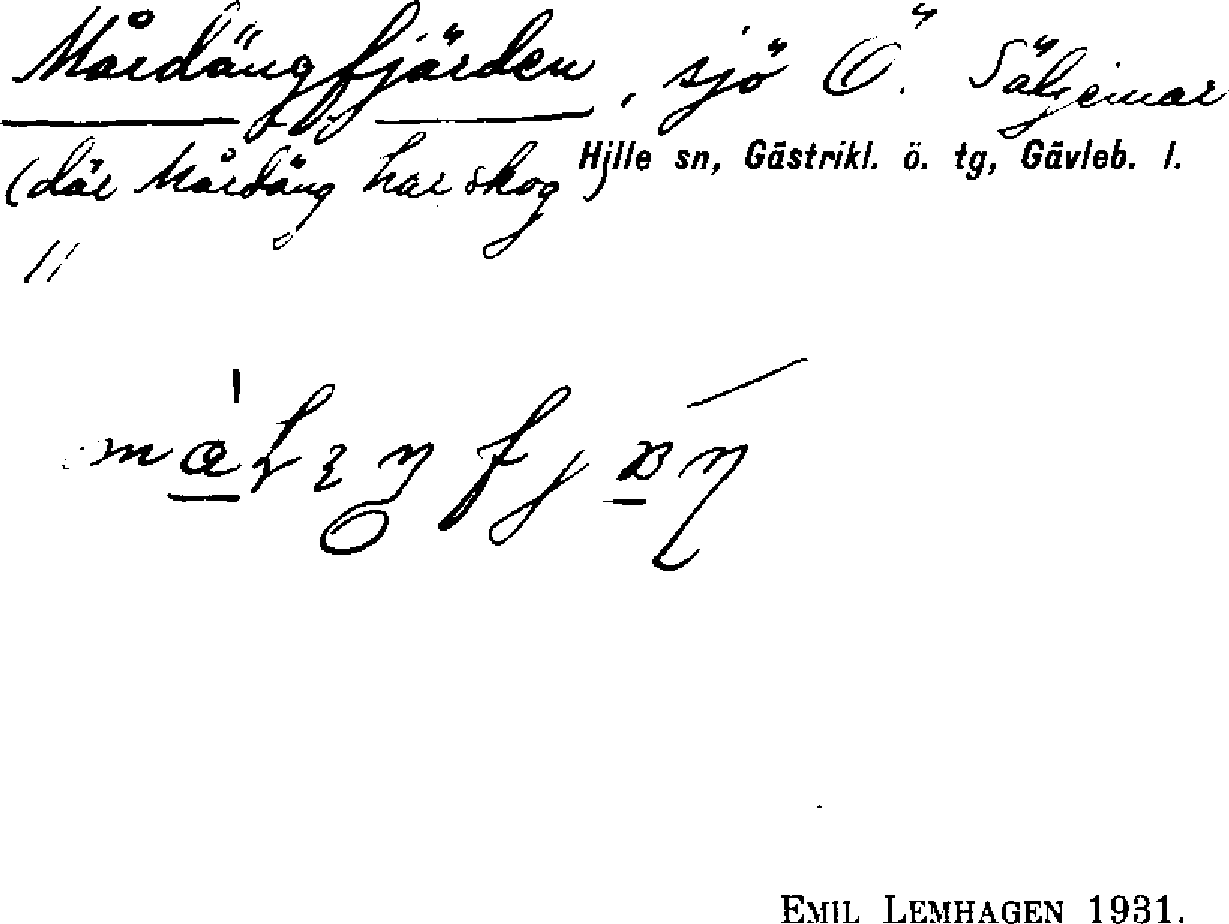 Mårdängfjärden, sjö Ö. Säljemar
(där Mårdäng har skog)
Hille sn, Gästrikl. ö. tg, Gävleb. l.
11
EMIL LEMHAGEN 1931.